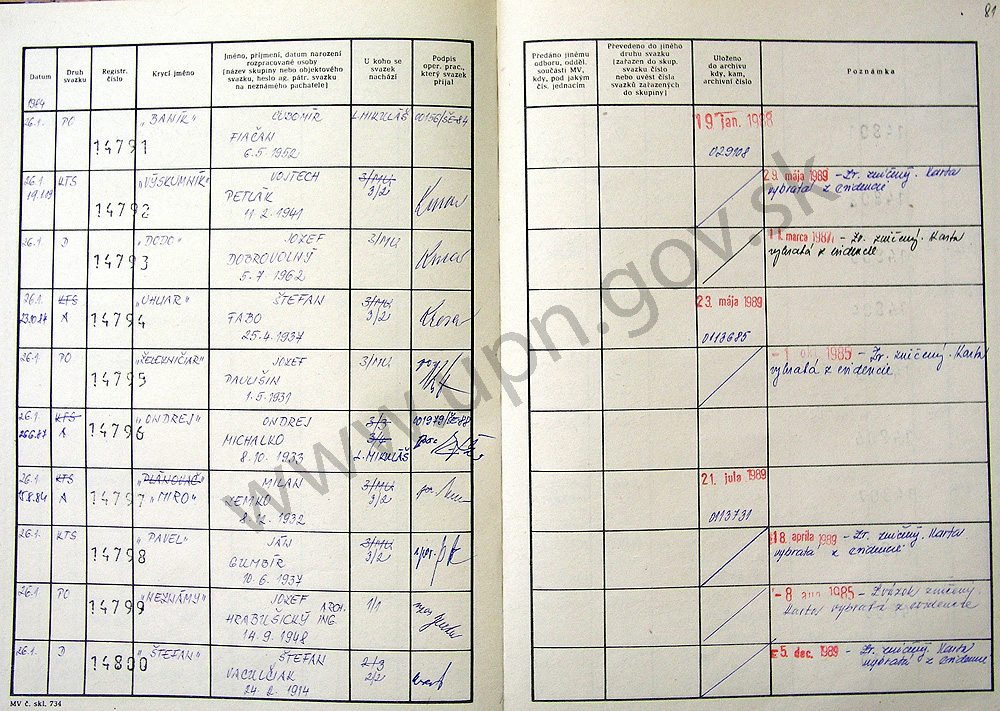 81
Datum
Druh svazku
Registr. číslo
Krycí jméno
Jméno, příjmení, datum narození
rozpracované osoby
[název skupiny nebo objektového
svazku, heslo ag. pátr. svazku
na neznámého pachatele]
U koho se
svazek
nachází
Podpis
oper. prac.,
který svazek
přijal
Předáno jinému
odboru, odděl.
součásti MV,
kdy, pod jakým
čís. jednacím
Převedeno do jiného
druhu svazku
[zařazen do skup.
svazku čísla
nebo uvést čísla
svazků zařazených
do skupiny]
Uloženo
do archivu
kdy, kam,
archivní číslo
Poznámka
1984
26.1. PO 14791 "BANÍK" ĽUBOMÍR L. MIKULÁŠ 00156/ŠE-84 19. jan. 1988
FIAČAN
6.5.1952 029108
26.1 KTS 14792 "VÝSKUMNÍK" VOJTECH 3/MU 29. mája 1989 - Zv. zničený. Karta
PETLÁK 3/2 vybratá z evidencie
11.2.1941
26.1 D 14793 "DODO" JOZEF 3/MU marca 1987 - Zv. zničený. Karta
DOBROVOLNÝ vybratá z evidencie
5.7 1962
26.1. KTS 14794 "UHLIAR" ŠTEFAN 3/MU 23. mája 1989
23.10.84 A FABO 3/2
25.4.1937 0113685
26.1 PO 14795 "ŽELEZNIČIAR" JOZEF 3/MU 1985 - Zv. zničený. Karta
PAVLIŠIN vybratá z evidencie
1.5.1931
26.1. KTS 14796 "ONDREJ" ONDREJ 3/3 001979/ŠE-88
25.6.87 A MICHALKO
8.10.1933 L. MIKULÁŠ
26.1 KTS 14797 "PLÁNOVAČ" MILAN 3/MU 21. jula 1989
A "MIRO" ZEMKO 3/2
8.12.1932 0113731
26.1. KTS 14798 "PAVEL" JÁN 3/MU 18. apríla 1989 - Zv. zničený. Karta
GUMBÍR 3/2 vybratá z evidencie
10.6.1937
26.1 PO 14799 "NEZNÁMY" JOZEF ARCH. 1/1 - 8 aug 1985 - Zväzok zničený
HRABUŠICKÝ ING. Karta vybratá z evidencie
14.9.1948
26.1. D 14800 "ŠTEFAN" ŠTEFAN 2/3 5. dec. 1989 - Zv. zničený. Karta
VACULČIAK 2/2 vybratá z evidencie
24.2.1914
MV č. skl. 734
www.upn.gov.sk